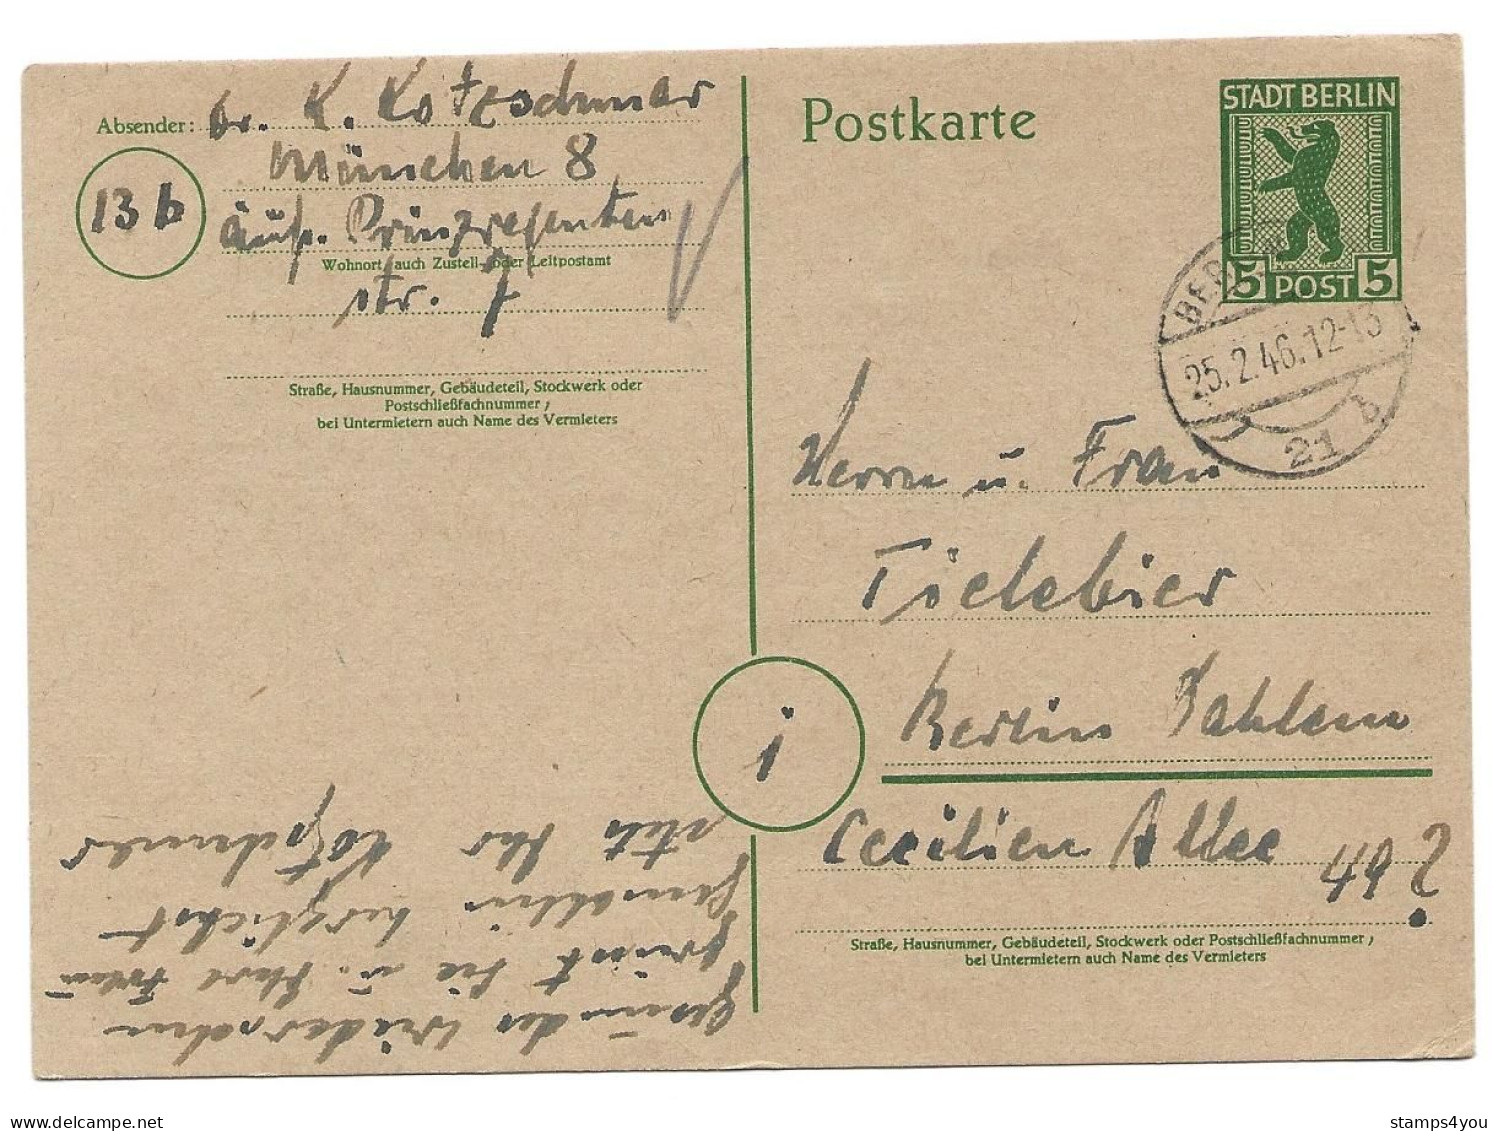 Absender: Dr. K. Kotzschmar
München 8
13 b
äuß. Prinzregenten
Wohnort, auch Zustell- oder Leitpostamt
str. 7
Straße, Hausnummer, Gebäudeteil, Stockwerk oder
Postschließfachnummer;
bei Untermietern auch Name des Vermieters
Postkarte
STADT BERLIN
5 POST 5
BERLIN
25.2.46.12-13
21 b
Herrn u. Frau
Tielebier
Berlin Dahlem
i
Cecilien Allee
49 ?
Straße, Hausnummer, Gebäudeteil, Stockwerk oder Postschließfachnummer;
bei Untermietern auch Name des Vermieters
Wiedersehen
grüßt Sie u. Ihre Frau
Gemahlin herzlichst
stets Ihr Kotzschmar
stamps4you
delcampe.net